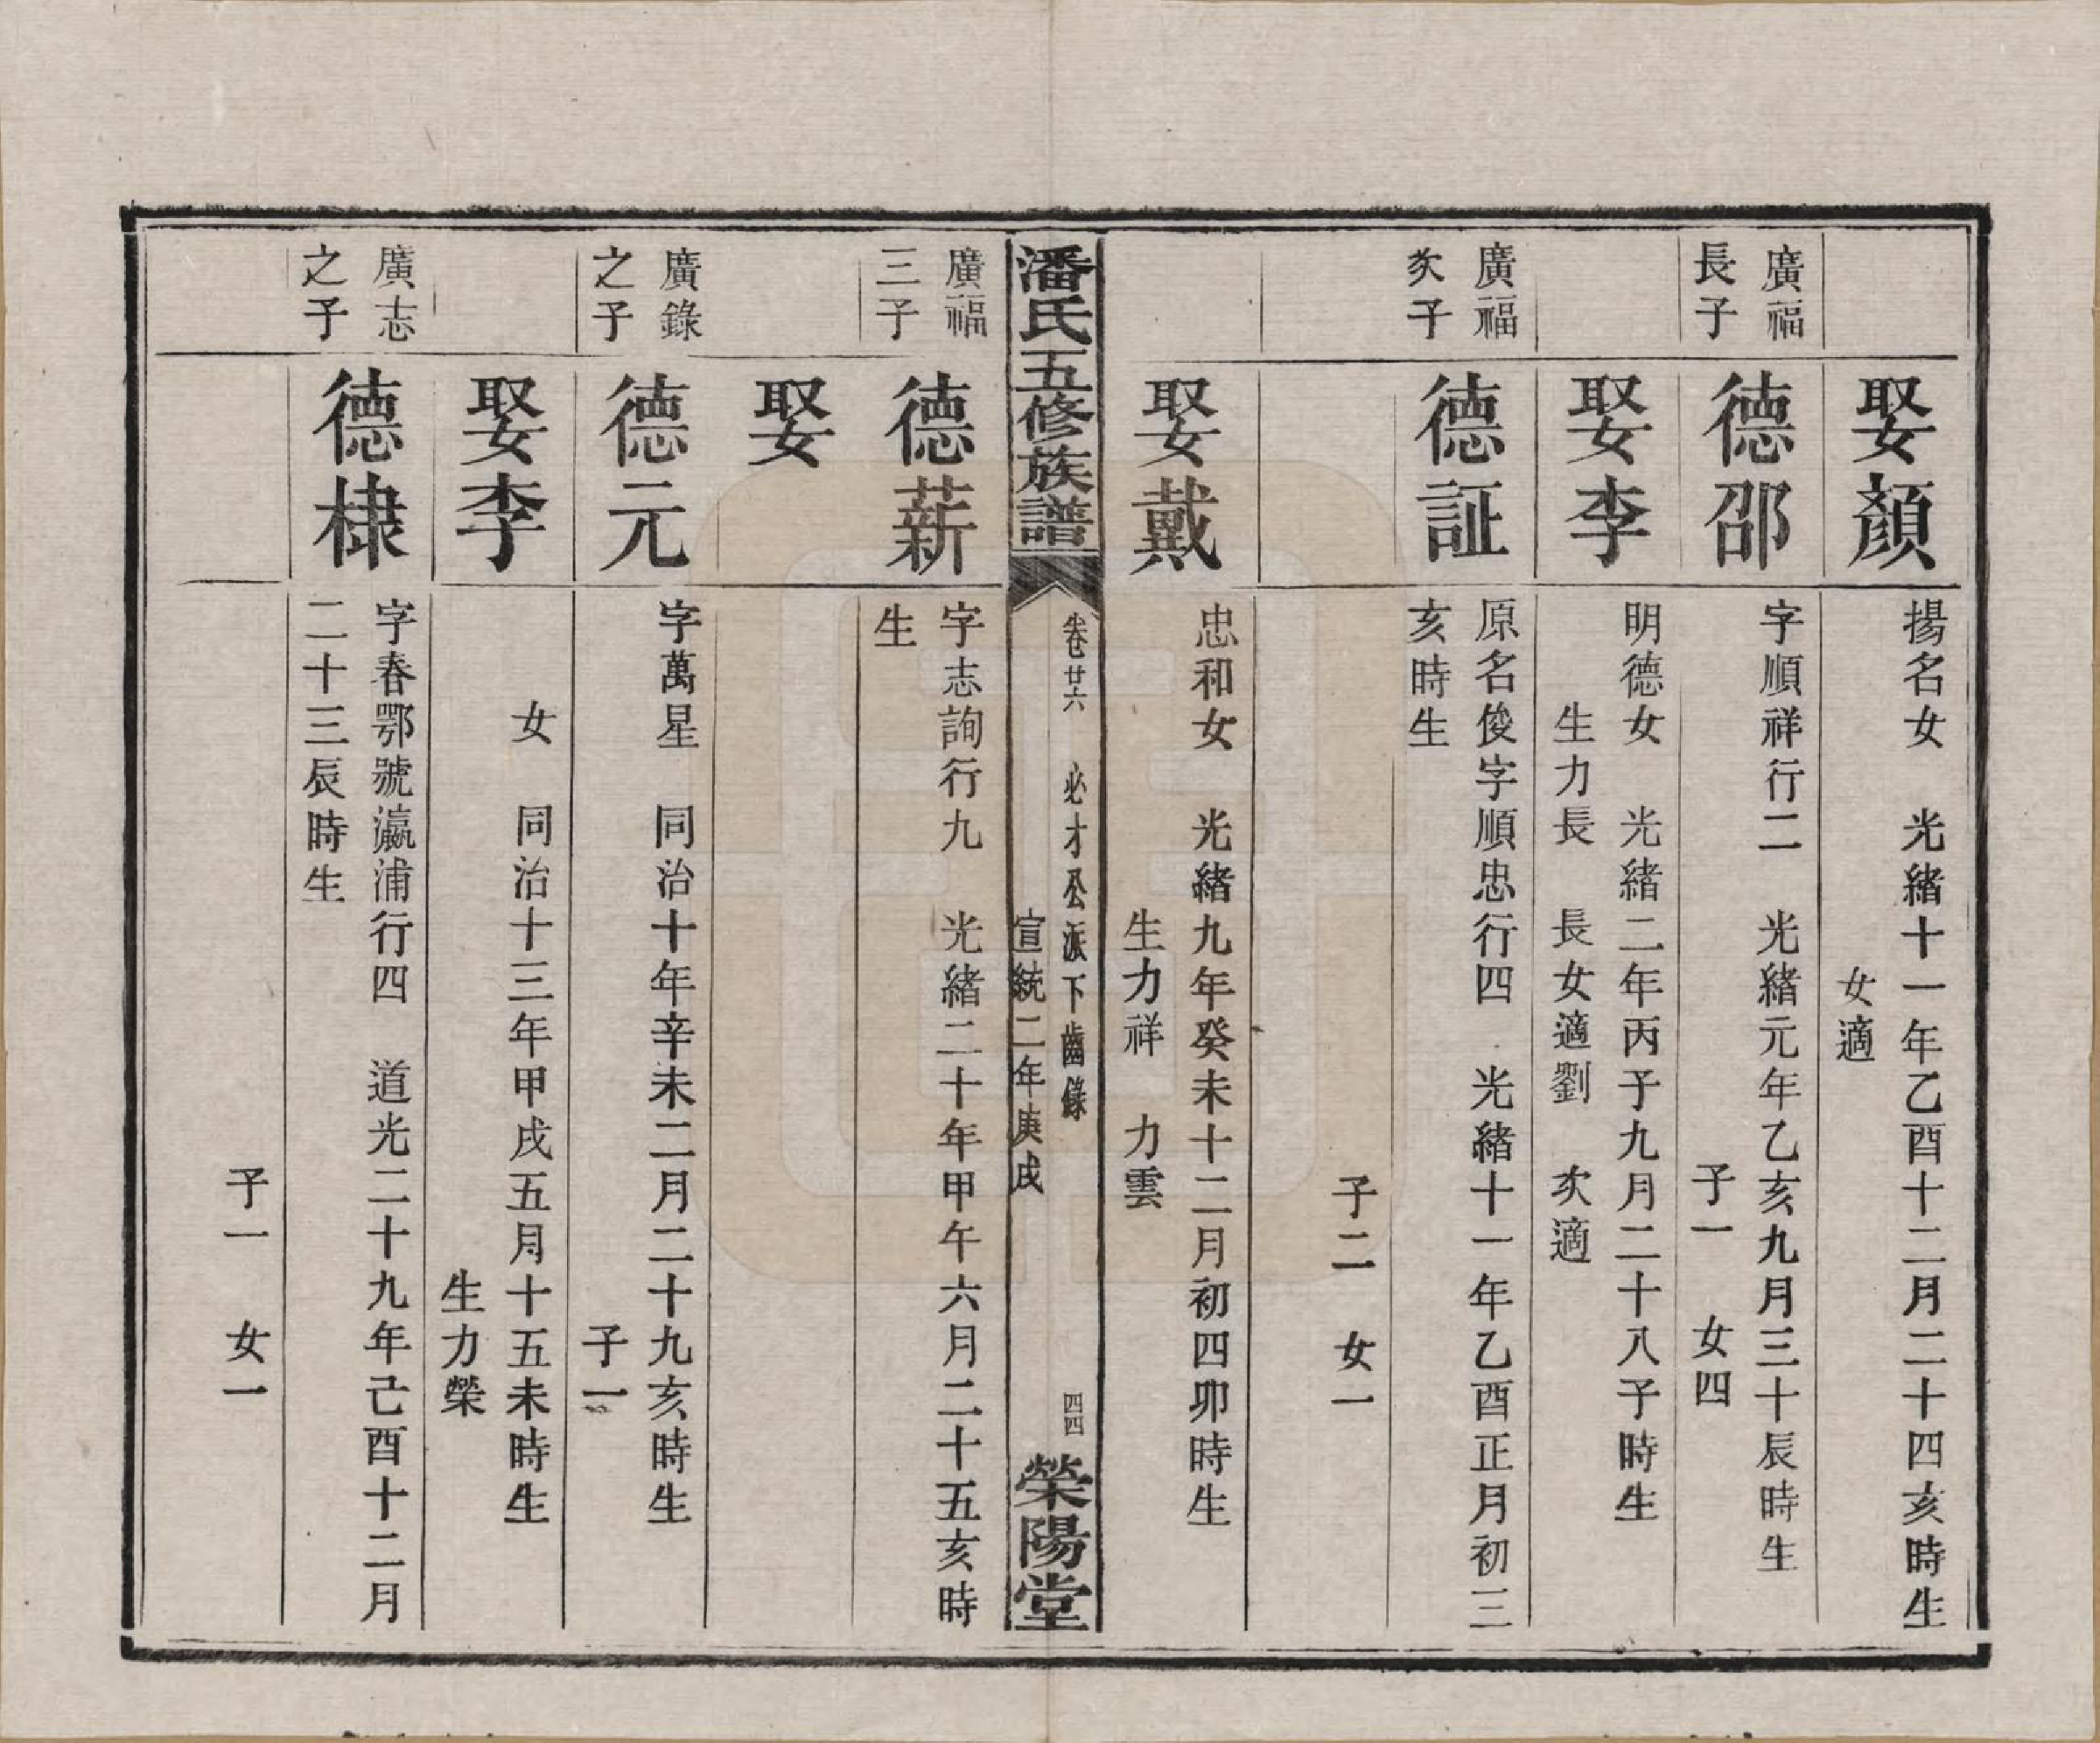 娶顏
揚名女　光緒十一年乙酉十二月二十四亥時生
女適
廣福
長子
德邵
字順祥行二　光緒元年乙亥九月三十辰時生
子一　女四
娶李
明德女　光緒二年丙子九月二十八子時生
生力長　長女適劉　次適
廣福
次子
德証
原名俊字順忠行四　光緒十一年乙酉正月初三
亥時生
子二　女一
娶戴
忠和女　光緒九年癸未十二月初四卯時生
生力祥　力雲
潘氏五修族譜
卷廿六　必才公派下齒錄
宣統二年庚戌
四四
榮陽堂
廣福
三子
德薪
字志詢行九　光緒二十年甲午六月二十五亥時
生
娶
廣錄
之子
德元
字萬星　同治十年辛未二月二十九亥時生
子一
娶李
女　同治十三年甲戌五月十五未時生
生力榮
廣志
之子
德棣
字春鄂號瀛浦行四　道光二十九年己酉十二月
二十三辰時生
子一　女一